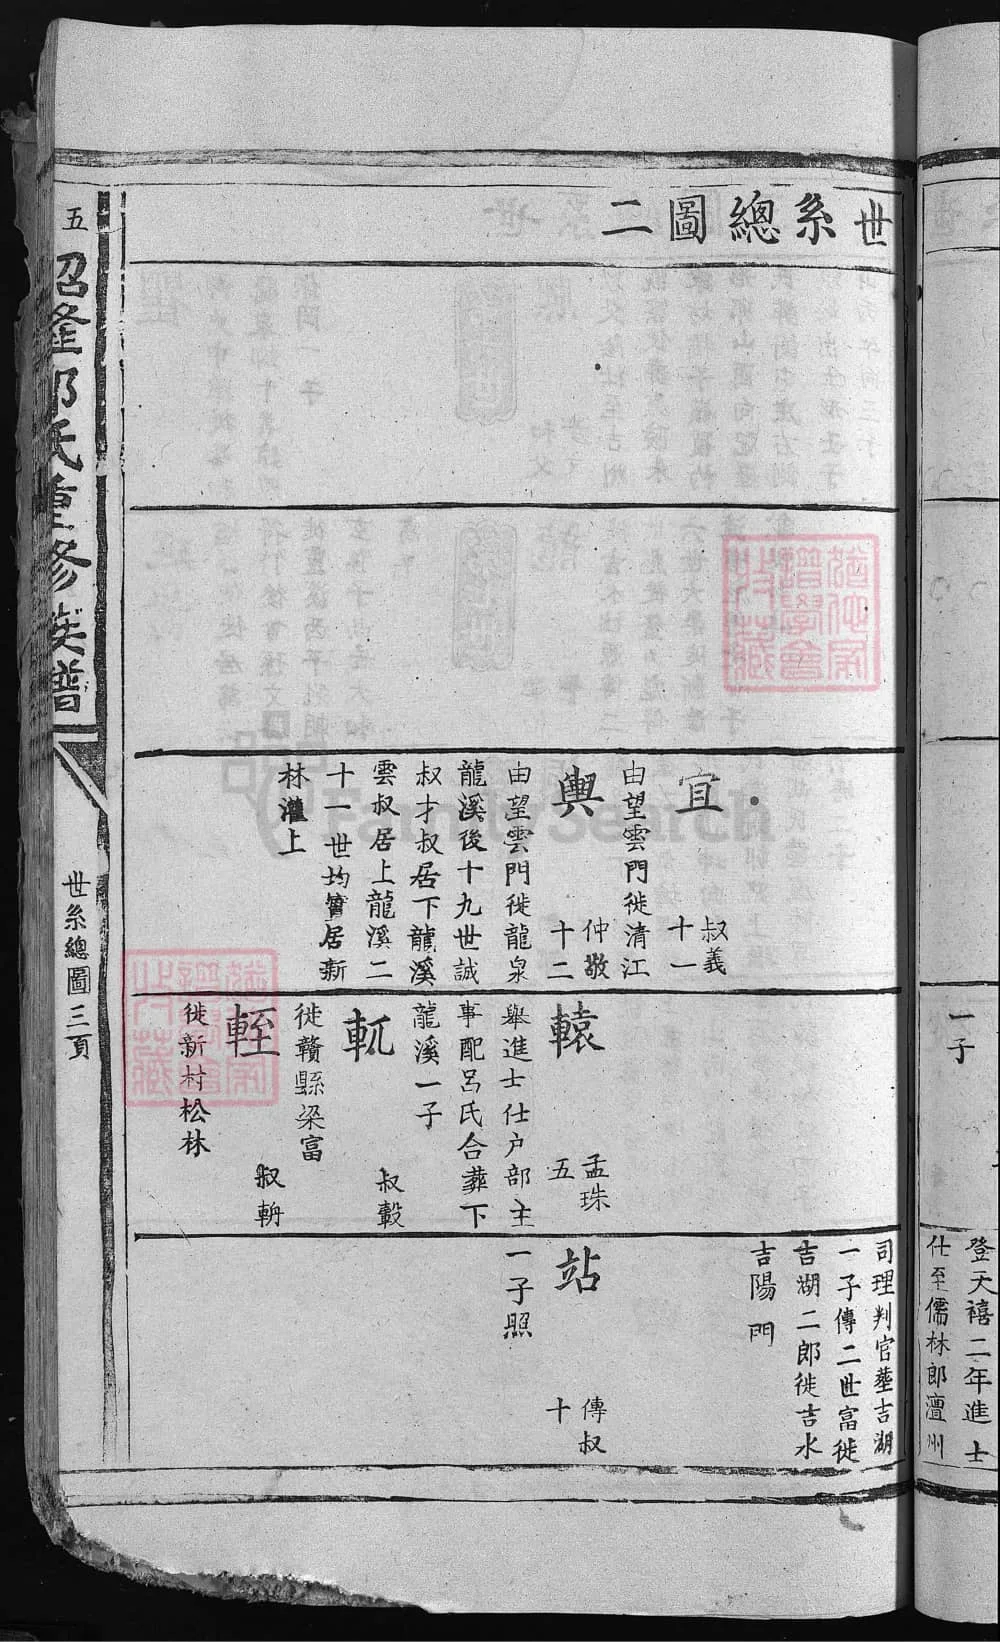 一子
登天禧二年進士
仕至儒林郎澶州
世系總圖二
宜
叔義
十一
由望雲門徙清江
輿
仲敬
十二
由望雲門徙龍泉
龍溪後十九世誠
叔才叔居下龍溪
雲叔居上龍溪二
十一世均實居新
林灘上
轅
孟珠
五
舉進士仕户部主
事配呂氏合葬下
龍溪一子
軏
叔轂
徙贛縣梁富
輊
叔軿
徙新村松林
司理判官葬吉湖
一子傳二世富徙
吉湖二郎徙吉水
吉陽門
站
傳叔
十
一子照
五
昭隆郭氏重修族譜
世系總圖三頁
FamilySearch